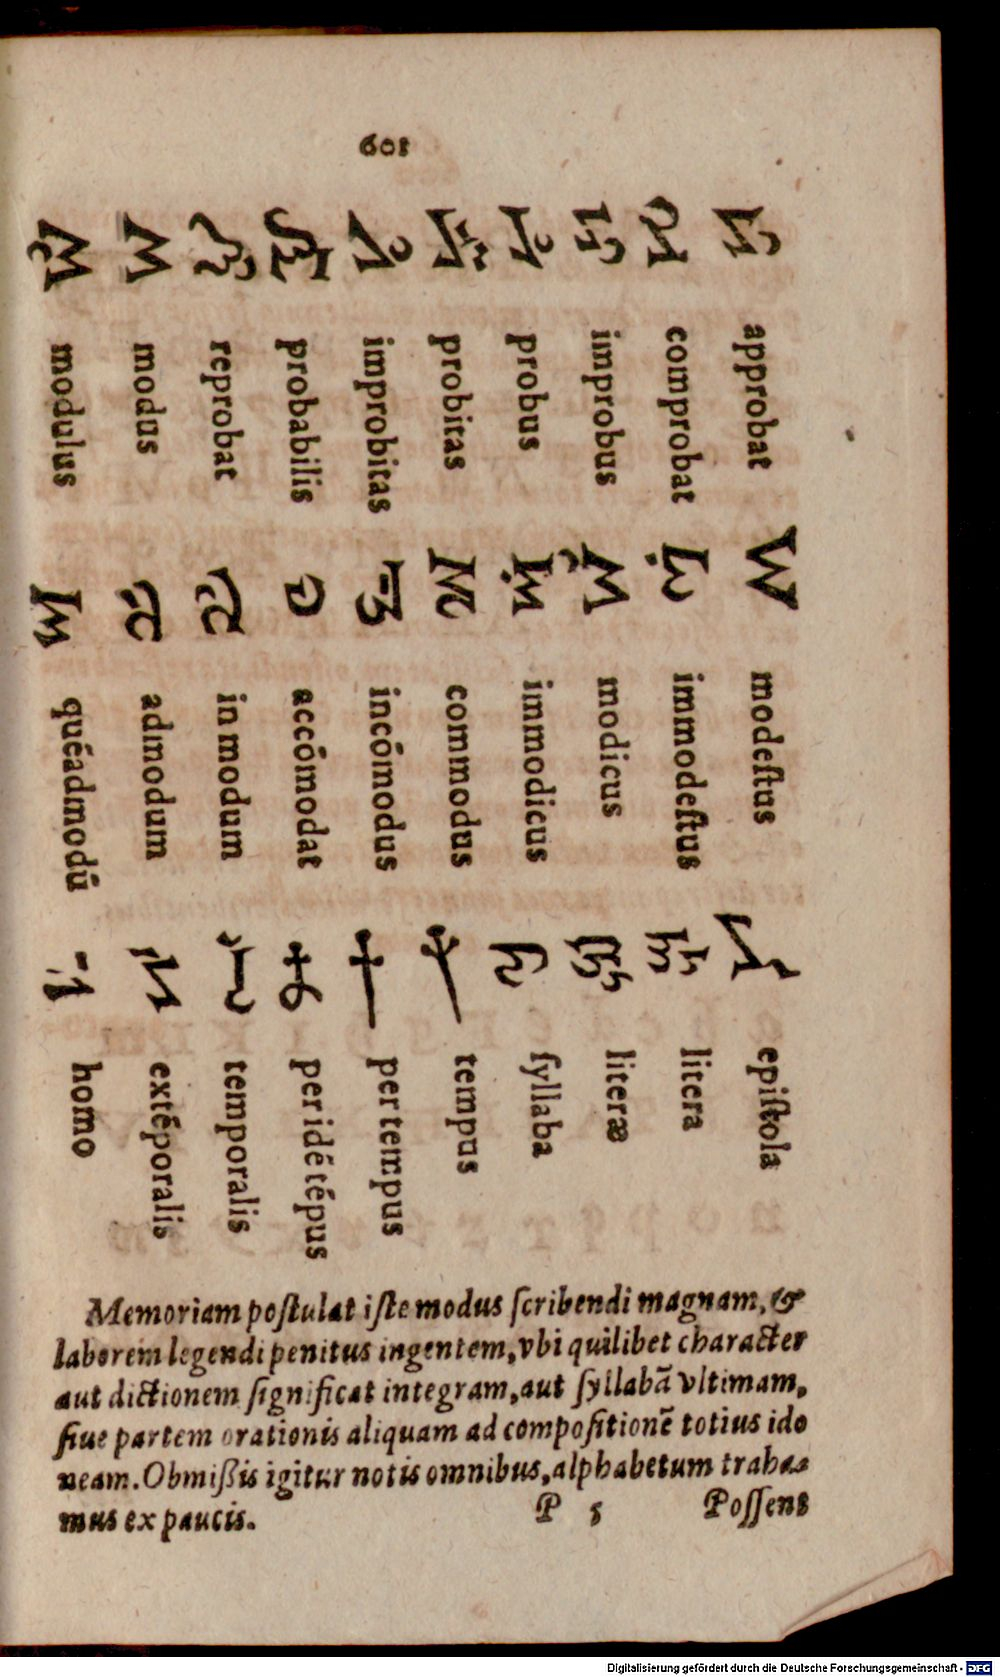 601
approbat
comprobat
improbus
probus
probitas
improbitas
probabilis
reprobat
modus
modulus
modeſtus
immodeſtus
modicus
immodicus
commodus
incōmodus
accōmodat
in modum
admodum
quēadmodū
epiſtola
litera
literæ
ſyllaba
tempus
per tempus
per idē tēpus
temporalis
extēporalis
homo
Memoriam poſtulat iſte modus ſcribendi magnam, &
laborem legendi penitus ingentem, vbi quilibet character
aut dictionem ſignificat integram, aut ſyllabā vltimam,
ſiue partem orationis aliquam ad compoſitionē totius ido
neam. Obmiſsis igitur notis omnibus, alphabetum traha⸗
mus ex paucis.
P 5 Poſſens
Digitalisierung gefördert durch die Deutsche Forschungsgemeinschaft - DFG